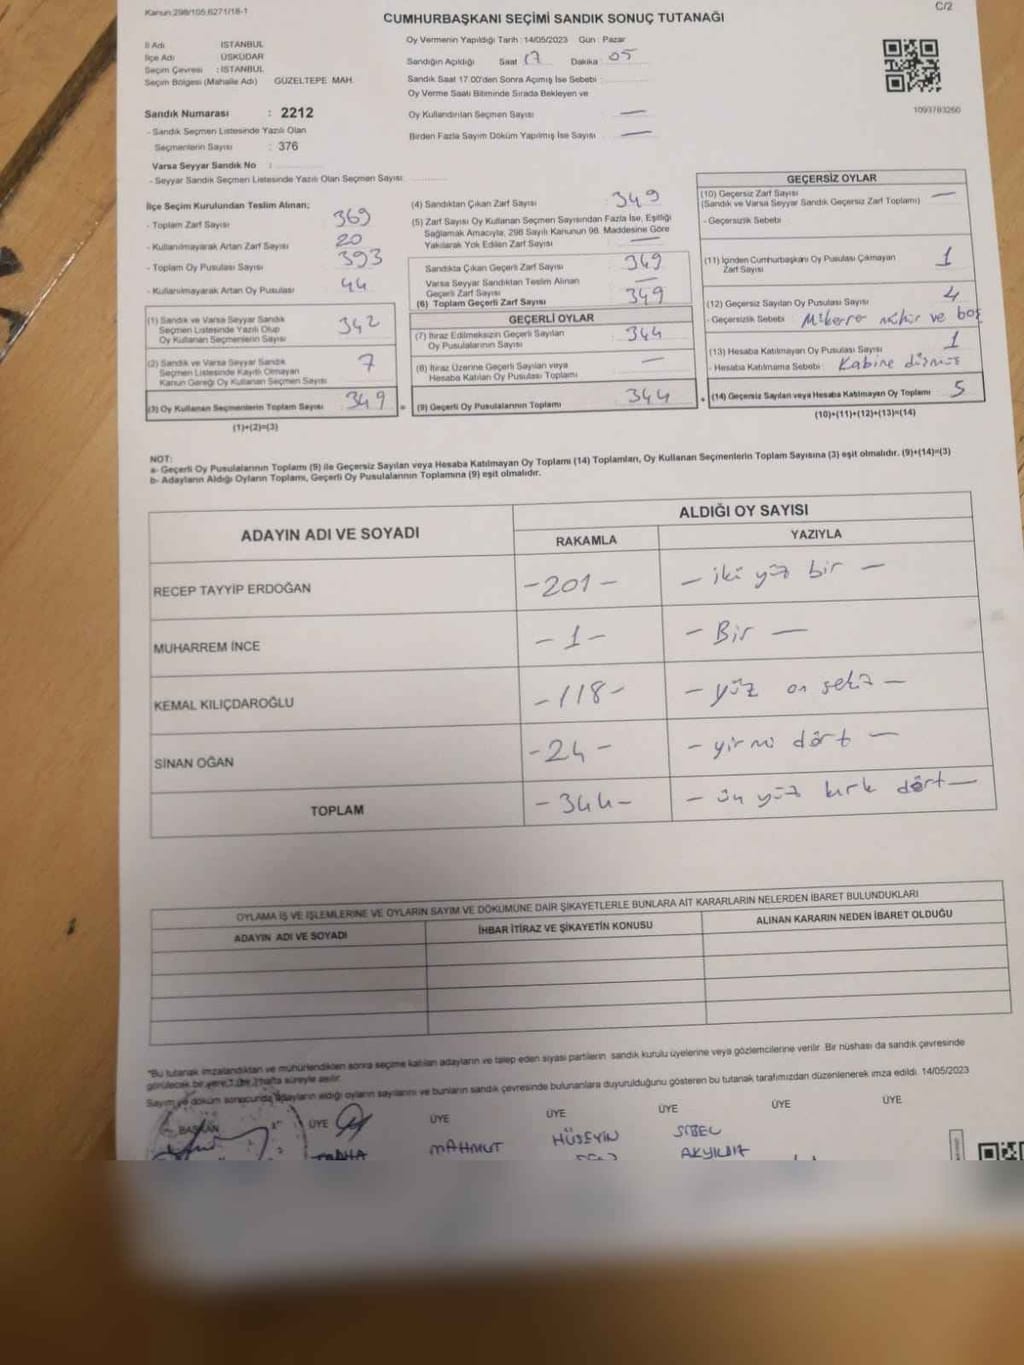 Kanun:298/105,6271/18-1
C/2
CUMHURBAŞKANI SEÇİMİ SANDIK SONUÇ TUTANAĞI
İl Adı : İSTANBUL
İlçe Adı : ÜSKÜDAR
Seçim Çevresi : İSTANBUL
Seçim Bölgesi (Mahalle Adı) GÜZELTEPE MAH.
Sandık Numarası : 2212
- Sandık Seçmen Listesinde Yazılı Olan
Seçmenlerin Sayısı : 376
Varsa Seyyar Sandık No :
- Seyyar Sandık Seçmen Listesinde Yazılı Olan Seçmen Sayısı:
Oy Vermenin Yapıldığı Tarih : 14/05/2023 Gün : Pazar
Sandığın Açıldığı Saat 17 Dakika 05
Sandık Saat 17.00'den Sonra Açımış İse Sebebi :
Oy Verme Saati Bitiminde Sırada Bekleyen ve
Oy Kullandırılan Seçmen Sayısı —
Birden Fazla Sayım Döküm Yapılmış İse Sayısı —
1093783260
İlçe Seçim Kurulundan Teslim Alınan;
- Toplam Zarf Sayısı 369
- Kullanılmayarak Artan Zarf Sayısı 20
- Toplam Oy Pusulası Sayısı 393
- Kullanılmayarak Artan Oy Pusulası 44
(1) Sandık ve Varsa Seyyar Sandık
Seçmen Listesinde Yazılı Olup
Oy Kullanan Seçmenlerin Sayısı 342
(2) Sandık ve Varsa Seyyar Sandık
Seçmen Listesinde Kayıtlı Olmayan
Kanun Gereği Oy Kullanan Seçmen Sayısı 7
(3) Oy Kullanan Seçmenlerin Toplam Sayısı 349
(1)+(2)=(3)
(4) Sandıktan Çıkan Zarf Sayısı 349
(5) Zarf Sayısı Oy Kullanan Seçmen Sayısından Fazla İse, Eşitliği
Sağlamak Amacıyla; 298 Sayılı Kanunun 98. Maddesine Göre
Yakılarak Yok Edilen Zarf Sayısı —
Sandıkta Çıkan Geçerli Zarf Sayısı 349
Varsa Seyyar Sandıktan Teslim Alınan
Geçerli Zarf Sayısı —
(6) Toplam Geçerli Zarf Sayısı 349
GEÇERLİ OYLAR
(7) İtiraz Edilmeksizin Geçerli Sayılan
Oy Pusulalarının Sayısı 344
(8) İtiraz Üzerine Geçerli Sayılan veya
Hesaba Katılan Oy Pusulası Toplamı —
= (9) Geçerli Oy Pusulalarının Toplamı 344
GEÇERSİZ OYLAR
(10) Geçersiz Zarf Sayısı
(Sandık ve Varsa Seyyar Sandık Geçersiz Zarf Toplamı) —
- Geçersizlik Sebebi :
(11) İçinden Cumhurbaşkanı Oy Pusulası Çıkmayan
Zarf Sayısı 1
(12) Geçersiz Sayılan Oy Pusulası Sayısı 4
- Geçersizlik Sebebi : Mükerrer mühür ve boş
(13) Hesaba Katılmayan Oy Pusulası Sayısı 1
- Hesaba Katılmama Sebebi : Kabine düşmüş
+ (14) Geçersiz Sayılan veya Hesaba Katılmayan Oy Toplamı 5
(10)+(11)+(12)+(13)=(14)
NOT:
a- Geçerli Oy Pusulalarının Toplamı (9) ile Geçersiz Sayılan veya Hesaba Katılmayan Oy Toplamı (14) Toplamları, Oy Kullanan Seçmenlerin Toplam Sayısına (3) eşit olmalıdır. (9)+(14)=(3)
b- Adayların Aldığı Oyların Toplamı, Geçerli Oy Pusulalarının Toplamına (9) eşit olmalıdır.
ADAYIN ADI VE SOYADI ALDIĞI OY SAYISI
RAKAMLA YAZIYLA
RECEP TAYYİP ERDOĞAN -201- - iki yüz bir -
MUHARREM İNCE -1- - Bir -
KEMAL KILIÇDAROĞLU -118- - yüz on sekiz -
SİNAN OĞAN -24- - yirmi dört -
TOPLAM -344- - üç yüz kırk dört -
OYLAMA İŞ VE İŞLEMLERİNE VE OYLARIN SAYIM VE DÖKÜMÜNE DAİR ŞİKAYETLERLE BUNLARA AİT KARARLARIN NELERDEN İBARET BULUNDUKLARI
ADAYIN ADI VE SOYADI İHBAR İTİRAZ VE ŞİKAYETİN KONUSU ALINAN KARARIN NEDEN İBARET OLDUĞU
"Bu tutanak imzalandıktan ve mühürlendikten sonra seçime katılan adayların ve talep eden siyasi partilerin sandık kurulu üyelerine veya gözlemcilerine verilir. Bir nüshası da sandık çevresinde
görülecek bir yere 1 (bir) hafta süreyle asılır.
Sayım ve döküm sonucunda adayların aldığı oyların sayılarını ve bunların sandık çevresinde bulunanlara duyurulduğunu gösteren bu tutanak tarafımızdan düzenlenerek imza edildi. 14/05/2023
BAŞKAN ÜYE ÜYE ÜYE ÜYE ÜYE ÜYE
MAHMUT HÜSEYİN SİBEL
AKYILDIZ